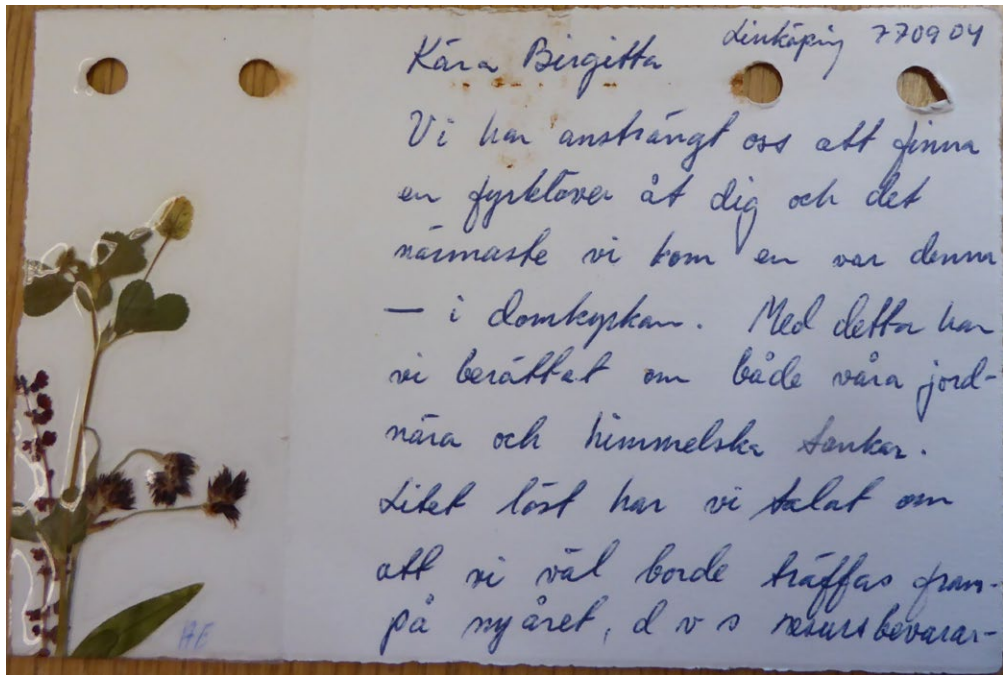 Linköping 770904
Kära Birgitta
Vi har ansträngt oss att finna
en fyrklöver åt dig och det
närmaste vi kom en var denna
— i domkyrkan. Med detta har
vi berättat om både våra jord-
nära och himmelska tankar.
Litet löst har vi talat om
att vi väl borde träffas fram-
på nyåret, d v s resursbevarar-
HE